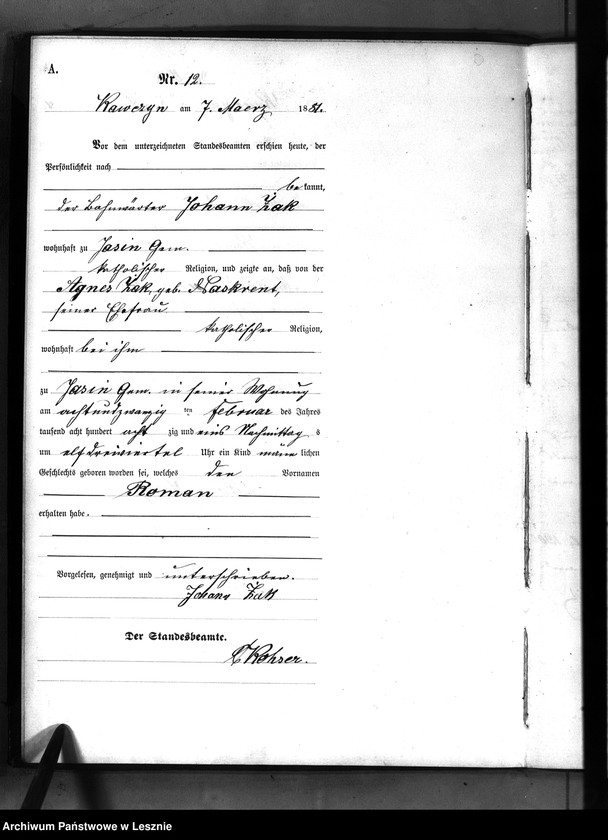 A.
Nr. 12.
Kawczyn am 7. Maerz 1881.
Vor dem unterzeichneten Standesbeamten erschien heute, der
Persönlichkeit nach
bekannt,
der Bahnwärter Johann Żak
wohnhaft zu Jasin Gem.
katholischer Religion, und zeigte an, daß von der
Agnes Żak, geb. Paskrent,
seiner Ehefrau
katholischer Religion,
wohnhaft bei ihm
zu Jasin Gem. in seiner Wohnung
am achtundzwanzig ten Februar des Jahres
tausend acht hundert acht zig und eins Nachmittag s
um elf dreiviertel Uhr ein Kind männ lichen
Geschlechts geboren worden sei, welches den Vornamen
Roman
erhalten habe.
Vorgelesen, genehmigt und unterschrieben.
Johann Żak
Der Standesbeamte.
Kohser.
Archiwum Państwowe w Lesznie